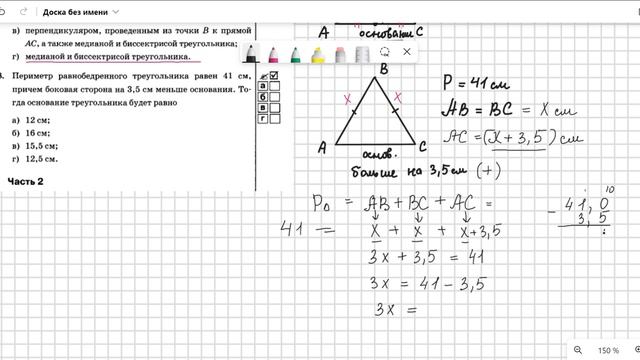 Доска без имени
в) перпендикуляром, проведенным из точки B к прямой
AC, а также медианой и биссектрисой треугольника;
г) медианой и биссектрисой треугольника.
3. Периметр равнобедренного треугольника равен 41 см,
причем боковая сторона на 3,5 см меньше основания. То-
гда основание треугольника будет равно
а) 12 см;
б) 16 см;
в) 15,5 см;
г) 12,5 см.
а
б
в
г
Часть 2
A основании C
B
x x
A C
основ.
больше на 3,5 см (+)
P = 41 см
AB = BC = x см
AC = (x + 3,5) см
PΔ = AB + BC + AC =
41 = x + x + x + 3,5
3x + 3,5 = 41
3x = 41 - 3,5
3x =
10
- 41,0
3,5
150 %